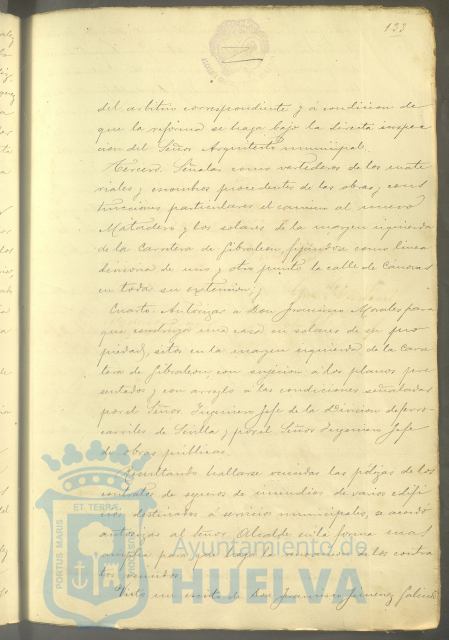 133
del arbitrio correspondiente y á condicion de
que la reforma se haga bajo la directa inspec
cion del Señor Arquitecto municipal.
Tercero. Señalar como vertederos de los mate
riales y escombros procedentes de las obras y cons
trucciones particulares el camino al nuevo
Matadero y los solares de la margen izquierda
de la Carretera de Gibraleon, fijándose como línea
divisoria de uno y otro punto la calle de Cánovas
en toda su extension; y
Cuarto. Autorizar a Don Francisco Morales para
que construya una casa en solares de su pro
piedad, sitos en la margen izquierda de la Carre
tera de Gibraleon, con sujecion a los planos pre
sentados y con arreglo a las condiciones señaladas
por el Señor Ingeniero Jefe de la Division de ferro-
carriles de Sevilla y por el Señor Ingeniero Jefe
de obras públicas.
Resultando hallarse vencidas las pólizas de los
contratos de seguros de incendios de varios edifi
cios destinados á servicios municipales, se acordó
autorizar al Señor Alcalde en la forma mas
amplia para que haga la renovacion de los contra
tos vencidos.
Visto un escrito de Don Francisco Jimenez
ET TERRÆ
PORTUS MARIS
CUSTODIA
Ayuntamiento de
HUELVA